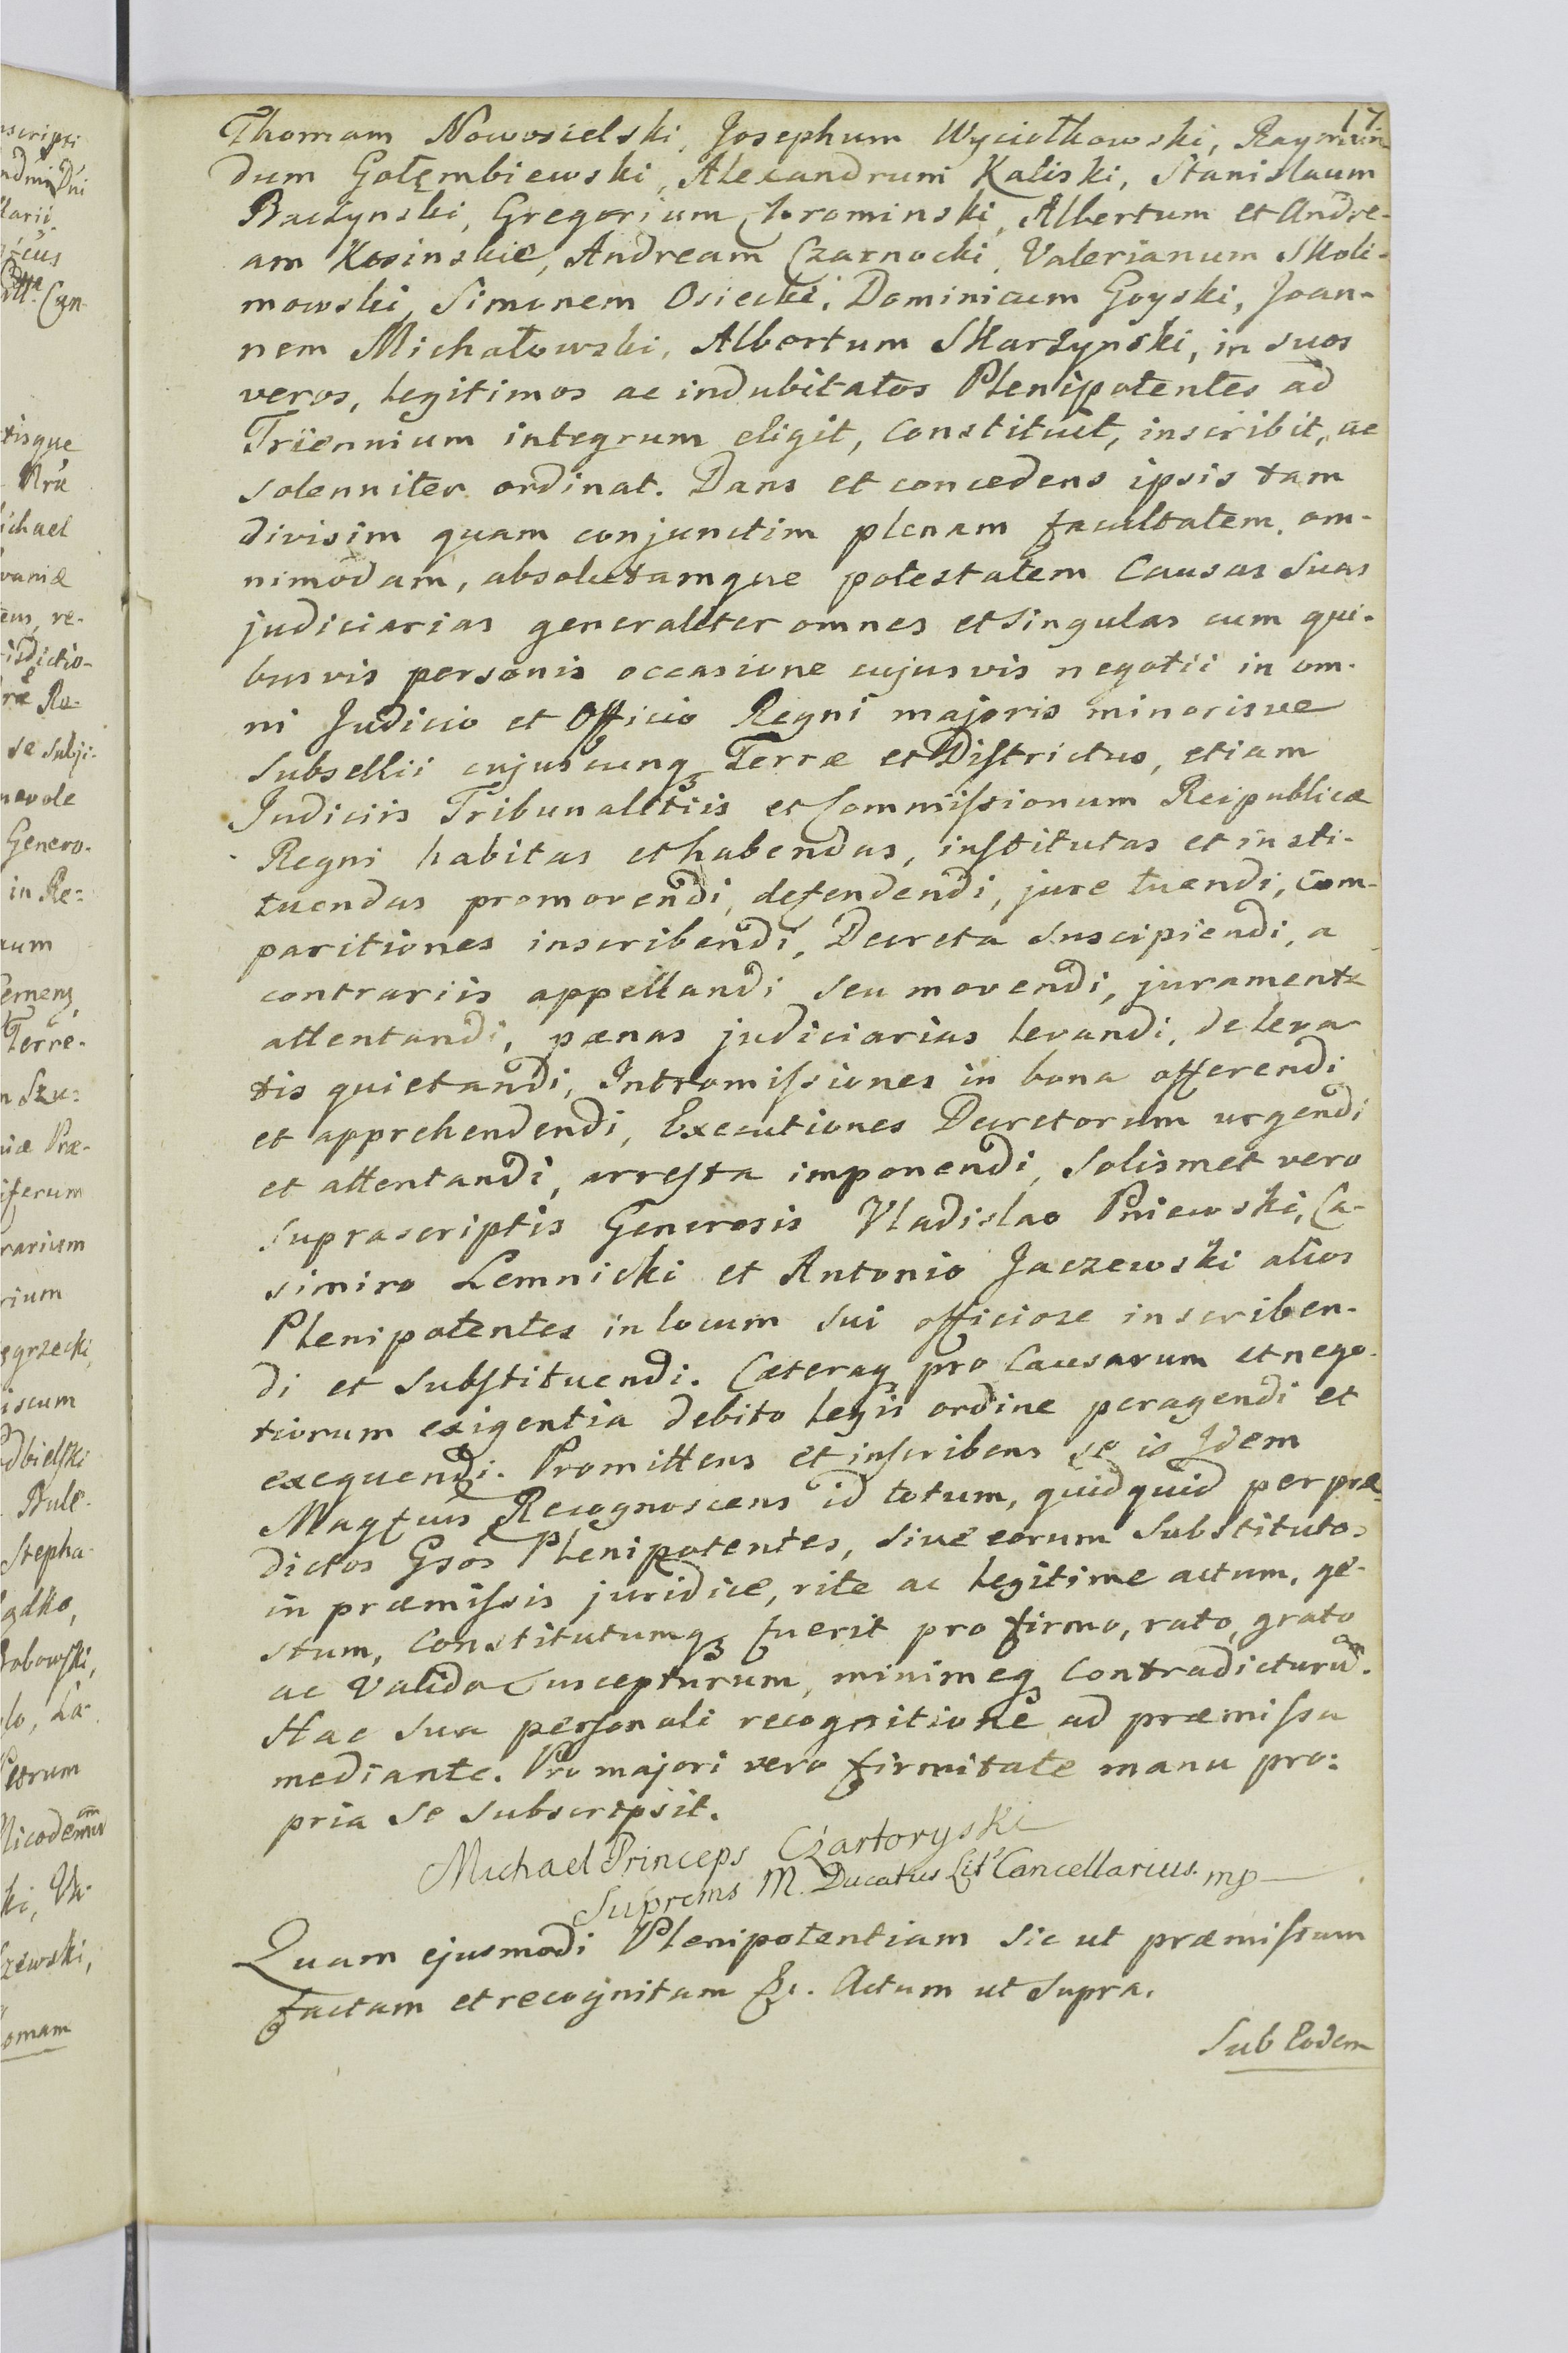 17
Thomam Nowosielski, Josephum Wyciołkowski, Raymun
dum Gołęmbiewski, Alexandrum Kaliski, Stanislaum
Baczynski, Gregorium Chrominski, Albertum et Andre-
am Kosinskie, Andream Czarnocki, Valerianum Skoli-
mowski, Simonem Osiecki, Dominicum Goyski, Joan-
nem Michałowski, Albertum Skarżynski, in suos
veros, legitimos ac indubitatos Plenipotentes ad
Triennium integrum eligit, Constituit, inscribit, ac
solenniter ordinat. Dans et concedens ipsis tam
divisim quam conjunctim plenam facultatem, om-
nimodam, absolutamque potestatem Causas Suas
judiciarias generaliter omnes et singulas cum qui-
busvis personis occasione cujusvis negotii in om-
ni Judicio et Officio Regni majoris minorisve
Subsellii cujuscunq Terræ et Districtus, etiam
Judiciis Tribunalitiis et Commissionum Reipublicæ
Regni habitas et habendas, institutas et insti-
tuendas promovendi, defendendi, jure tuendi, com-
paritiones inscribendi, Decreta Suscipiendi, a
contrariis appellandi seu movendi, juramenta
attentandi, pænas judiciarias levandi, de leva-
tis quietandi, Intromissiones in bona offerendi
et apprehendendi, Executiones Decretorum urgendi
et attentandi, arresta imponendi, Solismet vero
suprascriptis Generosis Vladislao Pniewski, Ca-
simiro Lemnicki et Antonio Jaczewski alios
Plenipotentes in locum sui officiose inscriben-
di et Substituendi. Cæteraq pro Causarum et nego-
tiorum exigentia debito legis ordine peragendi et
exequendi. Promittens et inscribens se is Idem
Magfcus Recognoscens id totum, quidquid per præ-
dictos Gsos Plenipotentes, sive eorum Substitutos
in præmissis juridice, rite ac legitime actum, ge-
stum, Constitutumq fuerit pro firmo, rato, grato
ac Valido Suscepturum, minimeq Contradicturum.
Hac sua personali recognitione ad præmissa
mediante. Pro majori vero firmitate manu pro:
pria se subscripsit.
Michael Princeps Czartoryski
Suprems M. Ducatus Lit' Cancellarius. mp
Quam ejusmodi Plenipotentiam sic ut præmissum
factam et recognitam &c. Actum ut supra.
Sub Eodem